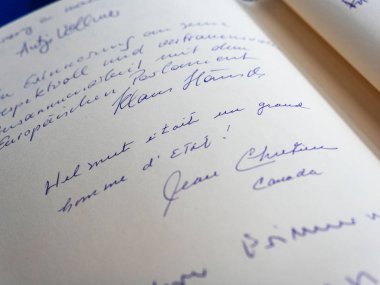 Antje Vollmer
Erinnerung an seine
und vertrauensvo
usammenarbeit mit dem
Europäischen Parlament
Klaus Hänsch
Helmut était un grand
homme d'Etat !
Jean Chretien
Canada